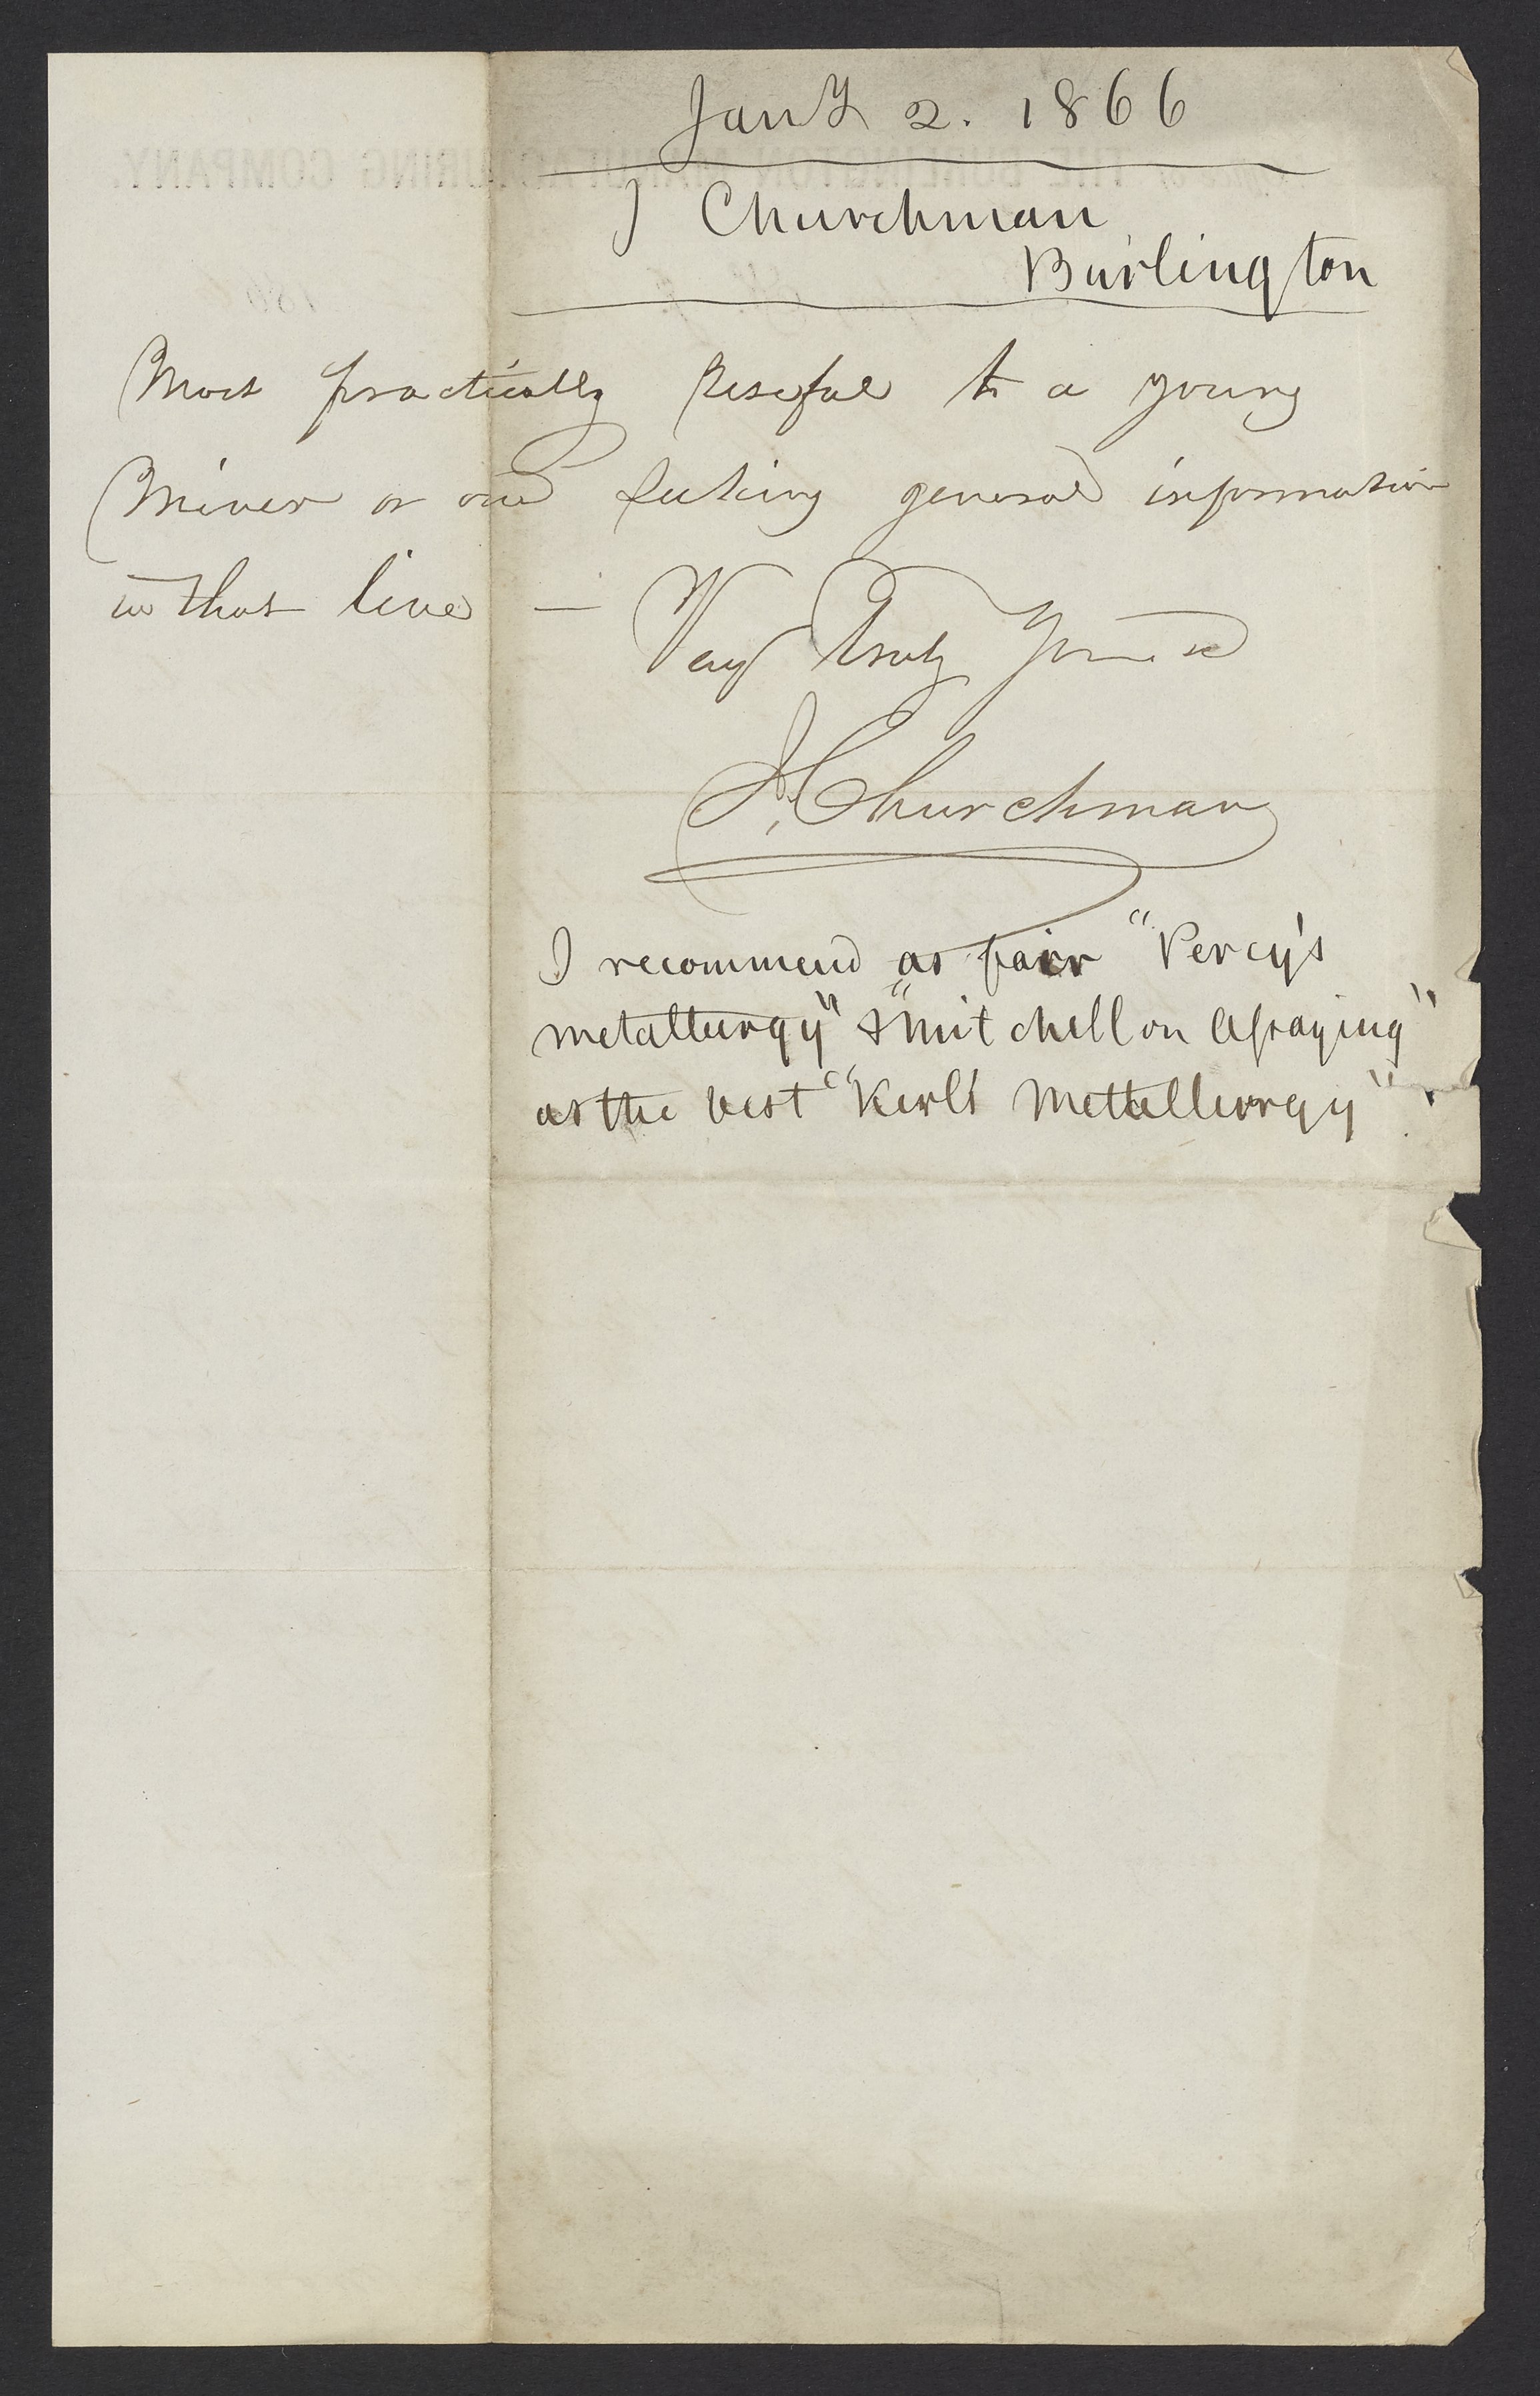 Jany 2. 1866
J Churchman
Burlington
Most practically useful to a young
Miner or one seeking general information
in that line — Very Truly Yours
J. Churchman
I recommend as fair "Percy's
metallurgy" & "Mitchell on Assaying"
as the best "Kerl's Mettallurgy"